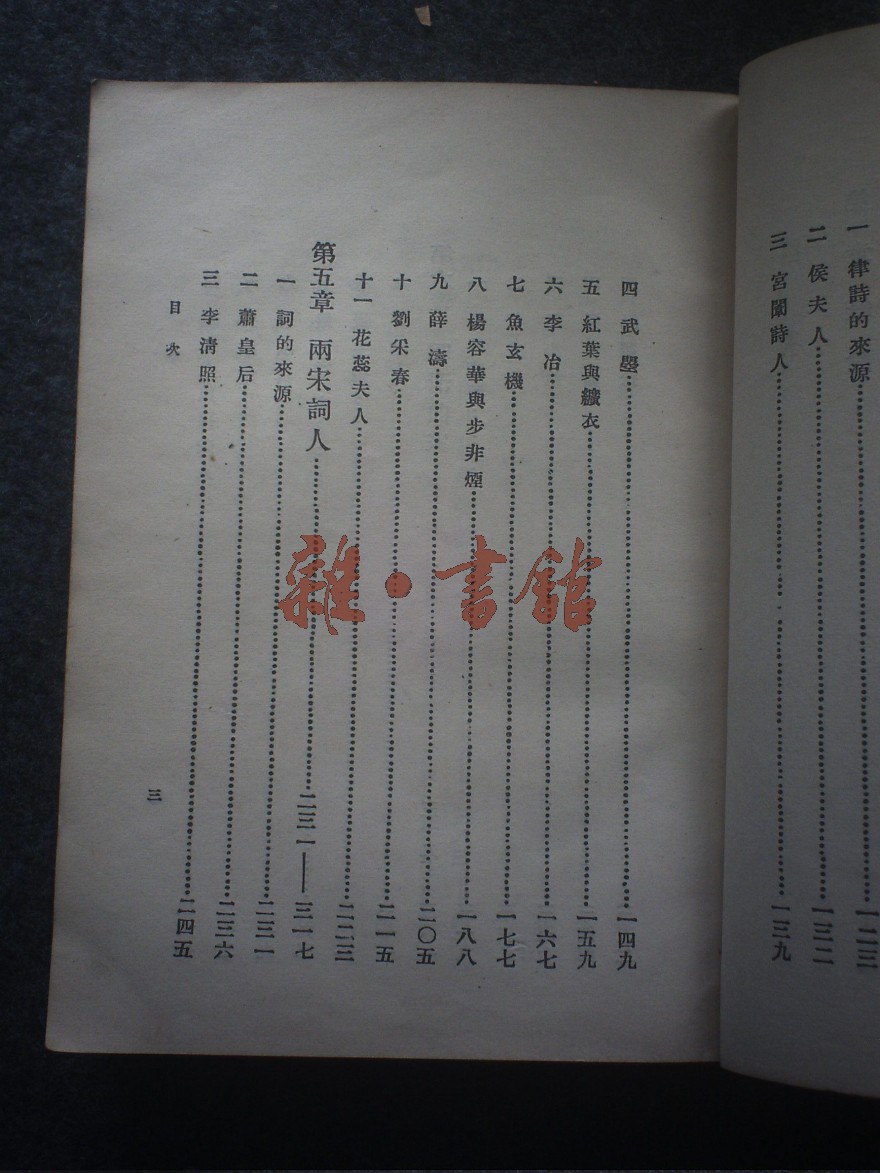 一 律詩的來源……一二三
二 侯夫人……一三二
三 宮闈詩人……一三九
四 武曌……一四九
五 紅葉與纊衣……一五九
六 李冶……一六七
七 魚玄機……一七七
八 楊容華與步非煙……一八八
九 薛濤……二〇五
十 劉采春……二一五
十一 花蕊夫人……二二三
第五章 兩宋詞人……二三一——三一七
一 詞的來源……二三一
二 蕭皇后……二三六
三 李清照……二四五
目次
三
雜·書館